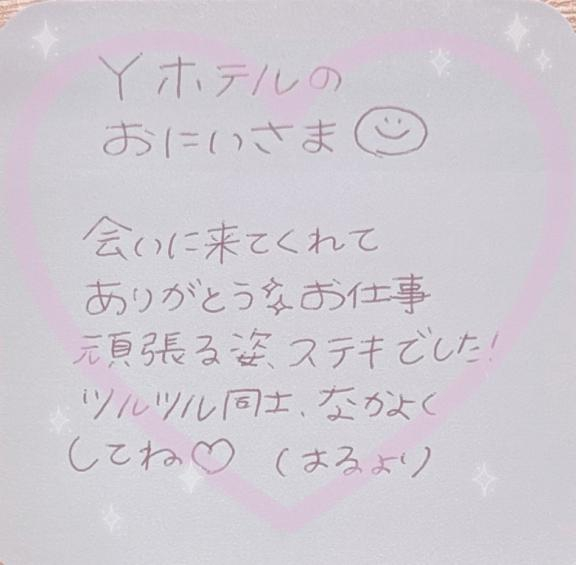 Yホテルの
おにいさま
会いに来てくれて
ありがとう お仕事
頑張る姿、ステキでした!
ツルツル同士、なかよく
してね♡ (はるより)